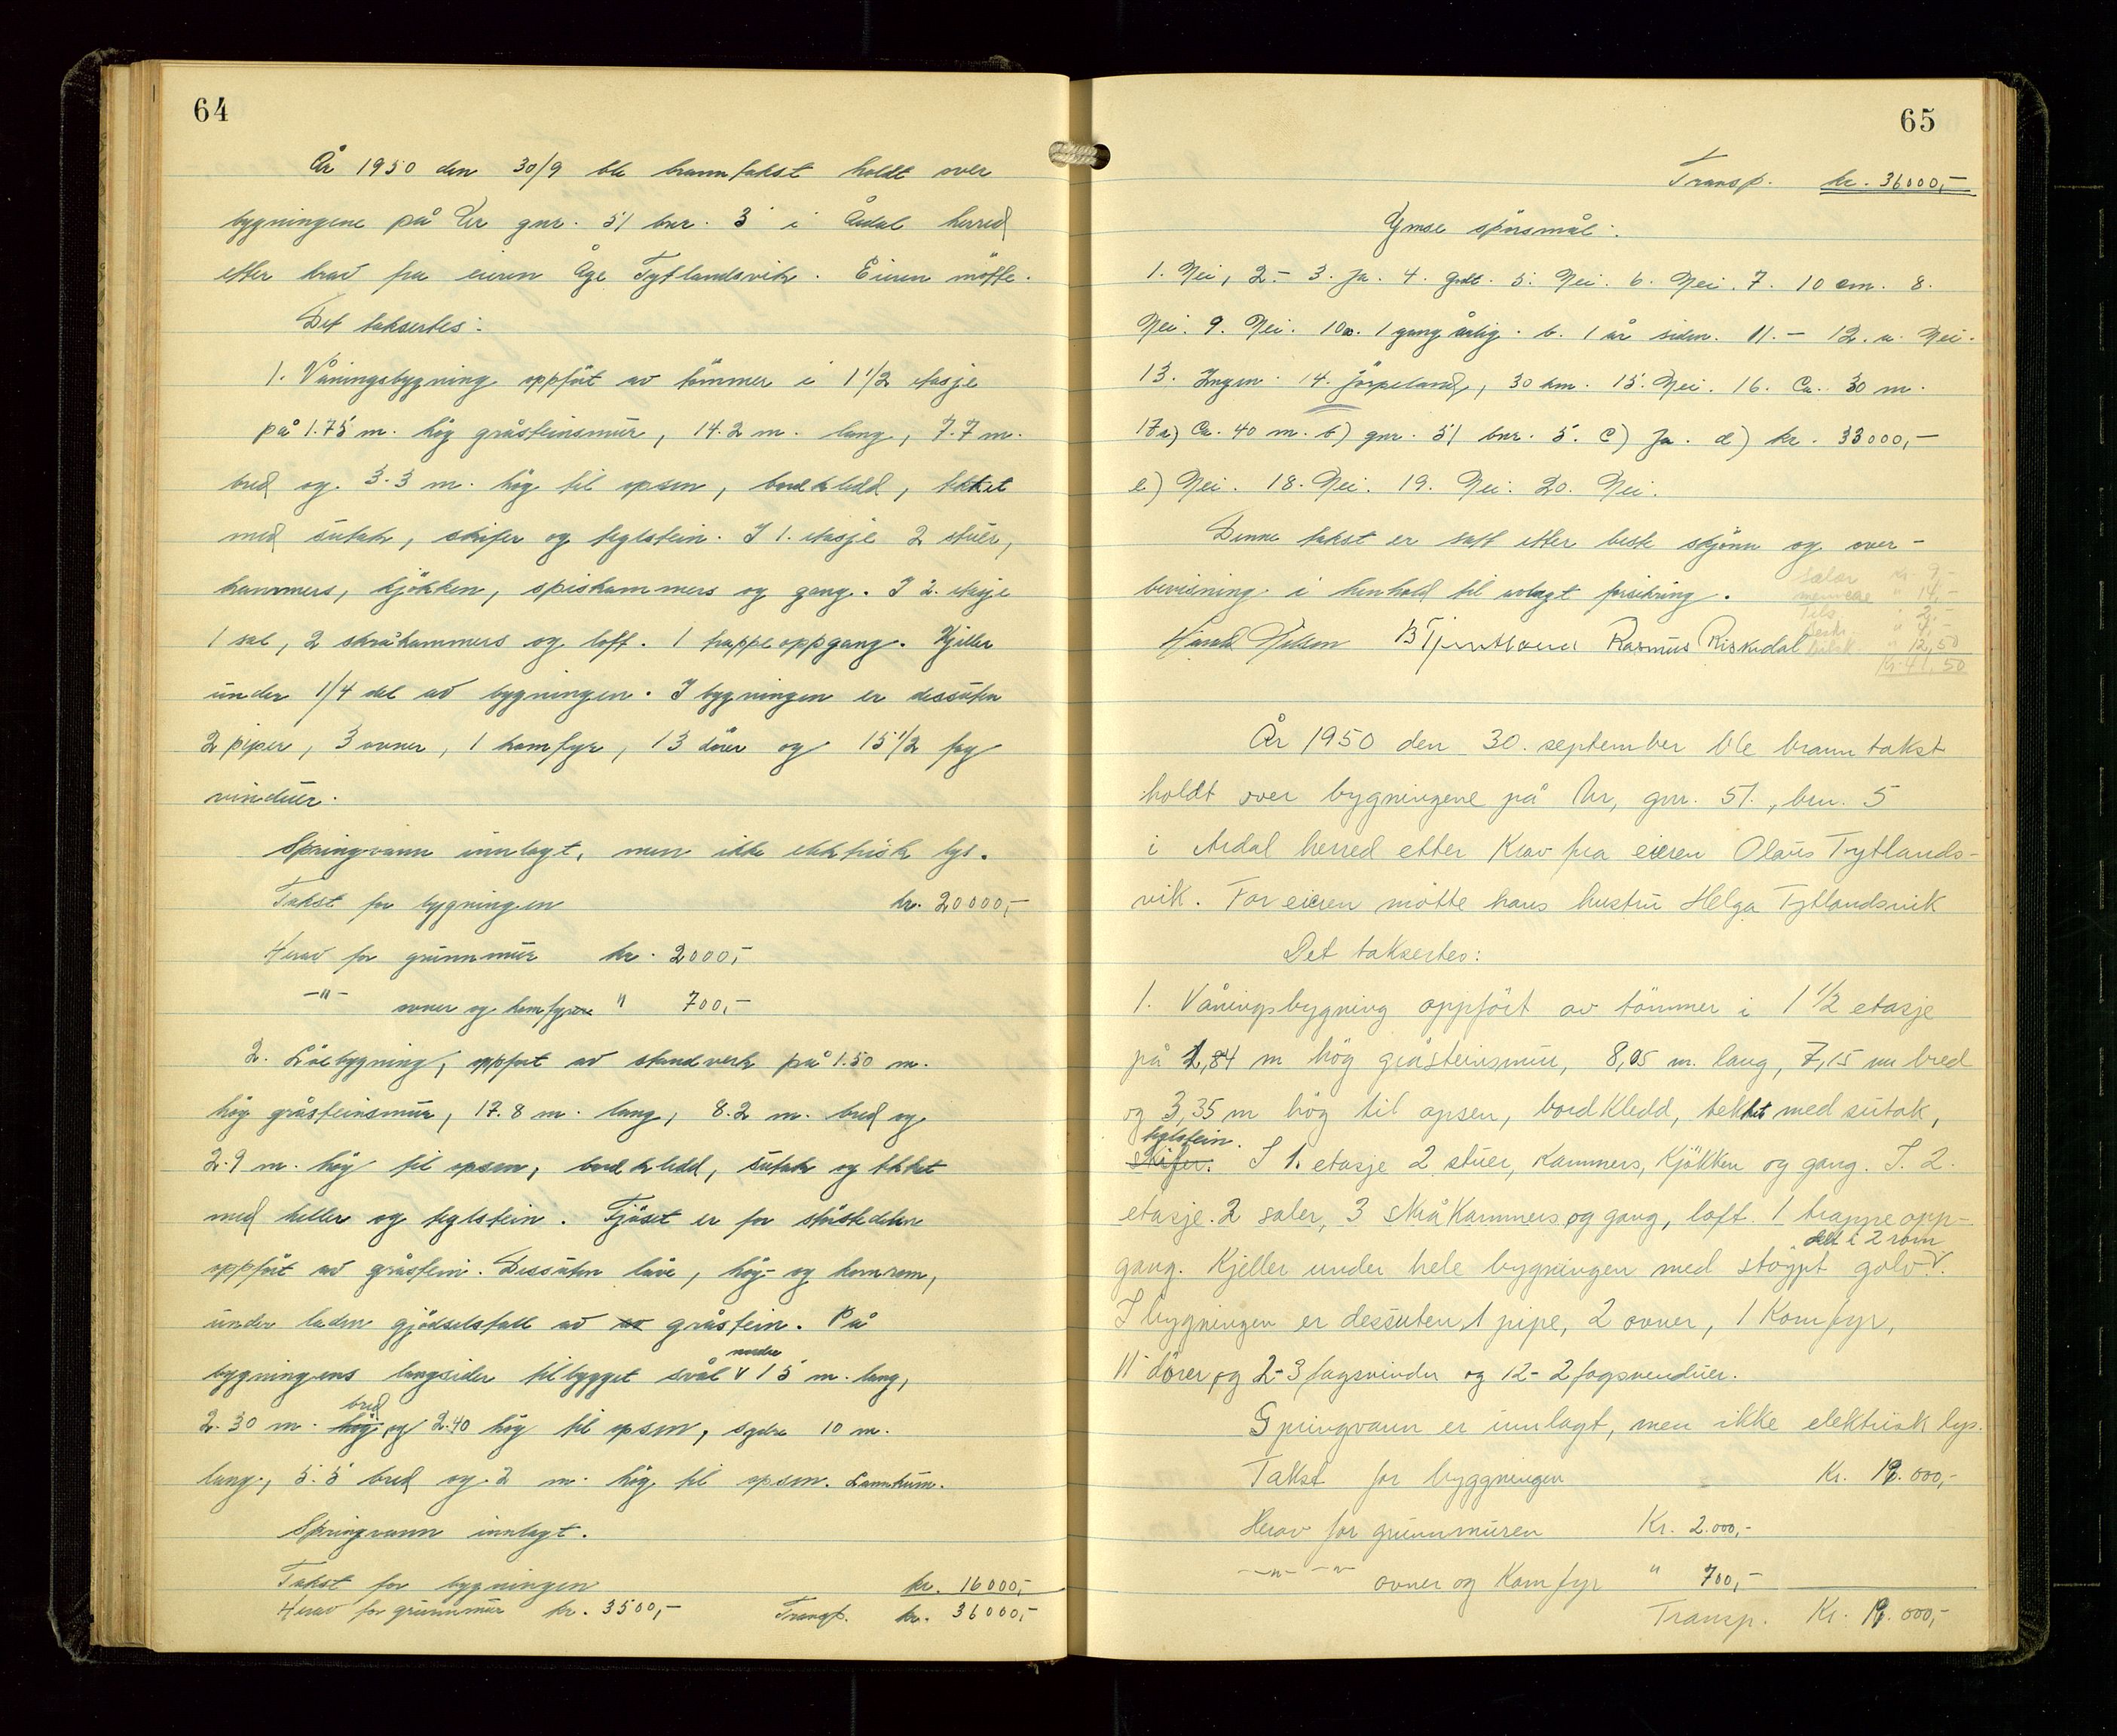 64
År 1950 den 30/9 ble branntakst holdt over
bygningene på Ur gnr. 51 bnr. 3 i Årdal herred
etter krav fra eieren Åge Tytlandsvik. Eieren mötte.
Det taksertes:
1. Våningsbygning oppfört av tömmer i 1 1/2 etasje
på 1.75 m. hög gråsteinsmur, 14.2 m. lang, 7.7 m.
bred og 3.3 m. hög til opsen, bordkledd, tekket
med sutak, skifer og teglstein. I 1. etasje 2 stuer,
kammers, kjökken, spiskammers og gang. I 2. etasje
1 sal, 2 skråkammers og loft. 1 trappeoppgang. Kjeller
under 1/4 del av bygningen. I bygningen er dessuten
2 piper, 3 ovner, 1 komfyr, 13 dörer og 15 1/2 fag
vinduer.
Springvann innlagt, men ikke elektrisk lys.
Takst for bygningen kr. 20000,-
Herav for grunnmur kr. 2000,-
-"- ovner og komfyrer " 700,-
2. Löebygning, oppfört av standverk på 1.50 m.
hög gråsteinsmur, 17.8 m. lang, 8.2 m. bred og
2.9 m. hög til opsen, bordkledd, sutak og tekket
med heller og teglstein. Fjöset er for störstedelen
oppfört av gråstein. Dessuten låve, höy- og kornrom,
under laden gjödselstall av av gråstein. På
bygningens langsider tilbygget svål nordre 15 m. lang,
2.30 m. hög bred og 2.40 hög til opsen, sydre 10 m.
lang, 5.5 bred og 2 m. hög til opsen. Lannkum.
Springvann innlagt.
Takst for bygningen kr. 16000,-
Herav for grunnmur kr. 3500,- Transp. kr. 36000,-
65
Transp. kr. 36000,-
Ymse spörsmål:
1. Nei, 2. - 3. Ja. 4. Godt. 5. Nei. 6. Nei. 7. 10 cm. 8.
Nei. 9. Nei. 10a. 1 gang årlig. b. 1 år siden. 11. - 12. a. Nei.
13. Ingen. 14. Jörpeland, 30 km. 15. Nei. 16. Ca. 30 m.
17a) Ca. 40 m. b) gnr. 51 bnr. 5. c) Ja. d) kr. 33000,-
e) Nei. 18. Nei. 19. Nei. 20. Nei.
Denne takst er satt etter beste skjönn og over-
bevisning i henhold til avlagt forsikring.
Rasmus Riskedal
kr. 9,-
" 14,-
" 2,-
12,50
Kr. 41,50
År 1950 den 30. september ble branntakst
holdt over bygningene på Ur, gnr. 51., bnr. 5
i Årdal herred etter Krav fra eieren Olaus Tytlands-
vik. For eieren mötte hans hustru Helga Tytlandsvik
Det taksertes:
1. Våningsbygning oppfört av tömmer i 1 1/2 etasje
på 1,84 m hög gråsteinsmur, 8,05 m. lang, 7,15 m bred
og 3,35 m hög til opsen, bordkledd, tekket med sutak,
teglstein.
skifer. I 1. etasje 2 stuer, Kammers, Kjökken og gang. I. 2.
etasje. 2 saler, 3 skråKammers og gang, loft. 1 trappeopp-
delt i 2 rom
gang. Kjeller under hele bygningen med stöypt golv.
I bygningen er dessuten 1 pipe, 2 ovner, 1 Komfyr,
11 dörer og 2-3 fagsvindu og 12-2 fagsvenduer.
Springvann er innlagt, men ikke elektrisk lys.
Takst for byggningen Kr. 19.000,-
Herav for grunnmuren Kr. 2.000,-
-"- -"- ovner og Komfyr " 700,-
Transp. Kr. 19.000,-